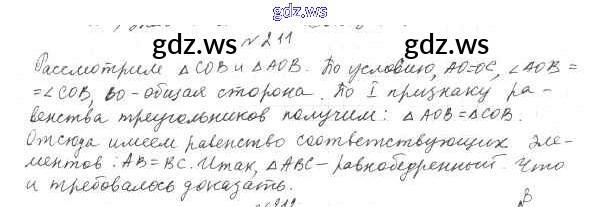 gdz.ws
gdz.ws № 211 gdz.ws
Рассмотрим △COB и △AOB. По условию, AO=OC, ∠AOB =
=∠COB, BO - общая сторона. По I признаку ра-
венства треугольников получим: △AOB=△COB.
Отсюда имеем равенство соответствующих эле-
ментов: AB=BC. Итак, △ABC - равнобедренный. Что
и требовалось доказать.
gdz.ws gdz.ws
B